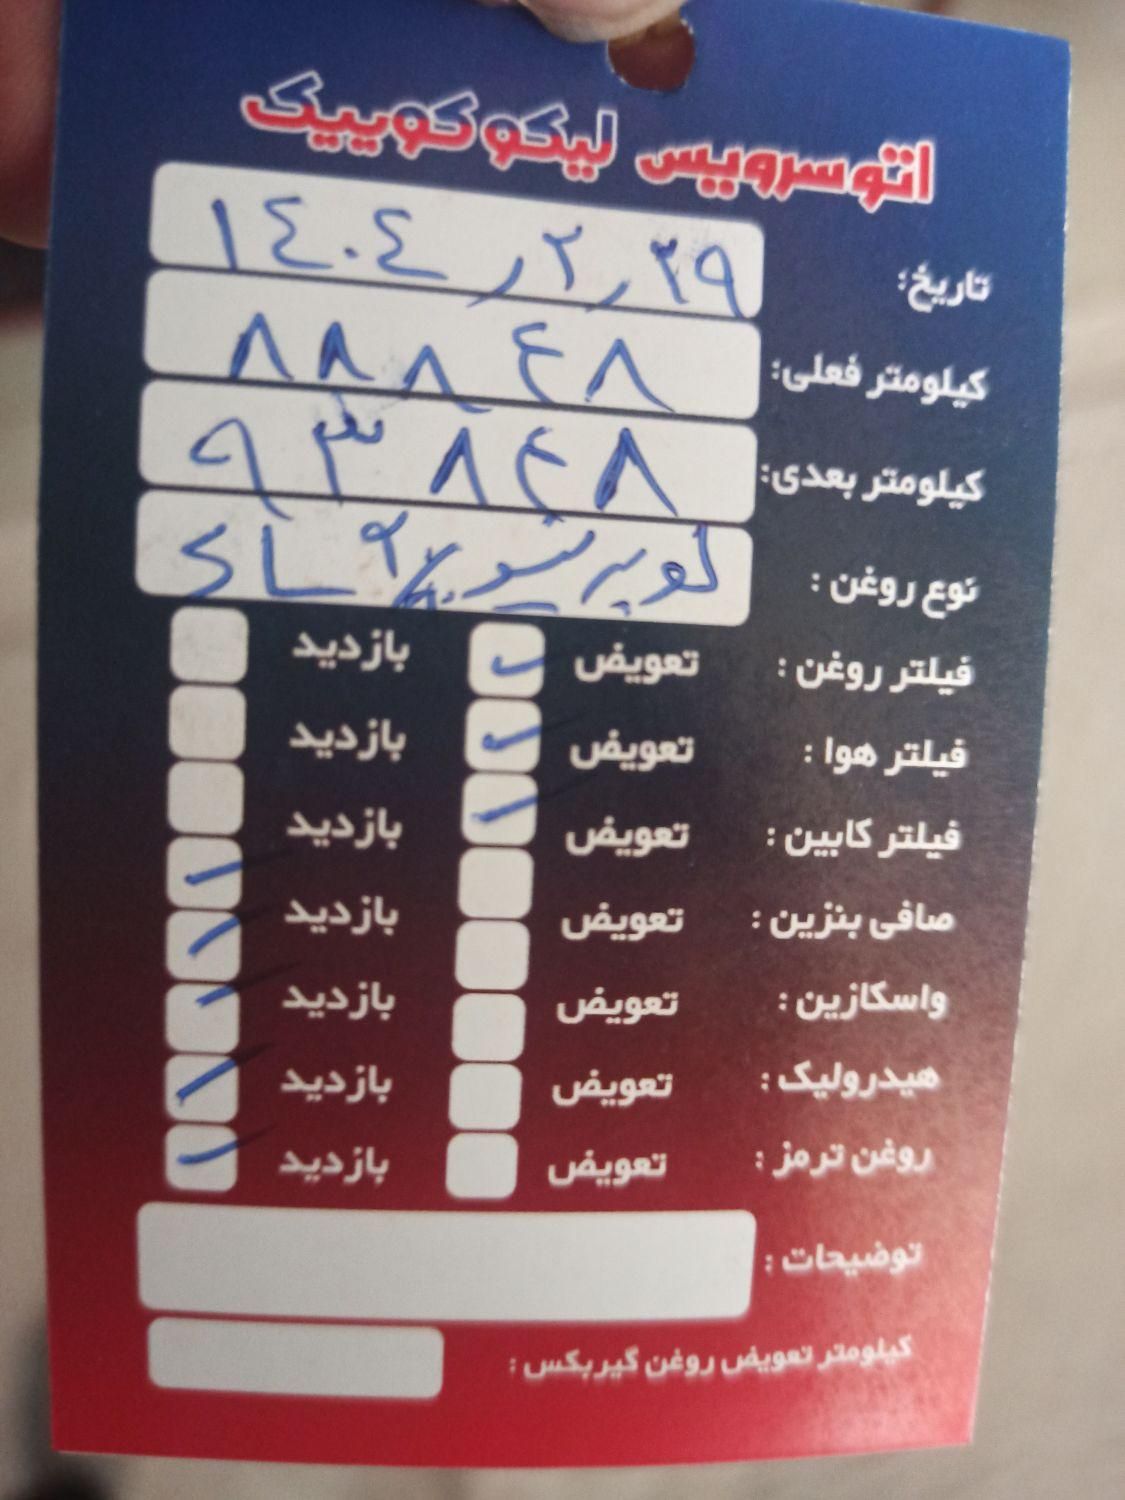 اتو سرویس لیکو کوییک
تاریخ: ۱۴۰۴٫۲٫۲۹
کیلومتر فعلی: ۸۸۸۴۸
کیلومتر بعدی: ۹۳۸۴۸
نوع روغن :
فیلتر روغن : تعویض ✓ بازدید
فیلتر هوا : تعویض ✓ بازدید
فیلتر کابین : تعویض ✓ بازدید
صافی بنزین : تعویض بازدید ✓
واسکازین : تعویض بازدید ✓
هیدرولیک : تعویض بازدید ✓
روغن ترمز : تعویض بازدید ✓
توضیحات :
کیلومتر تعویض روغن گیربکس :